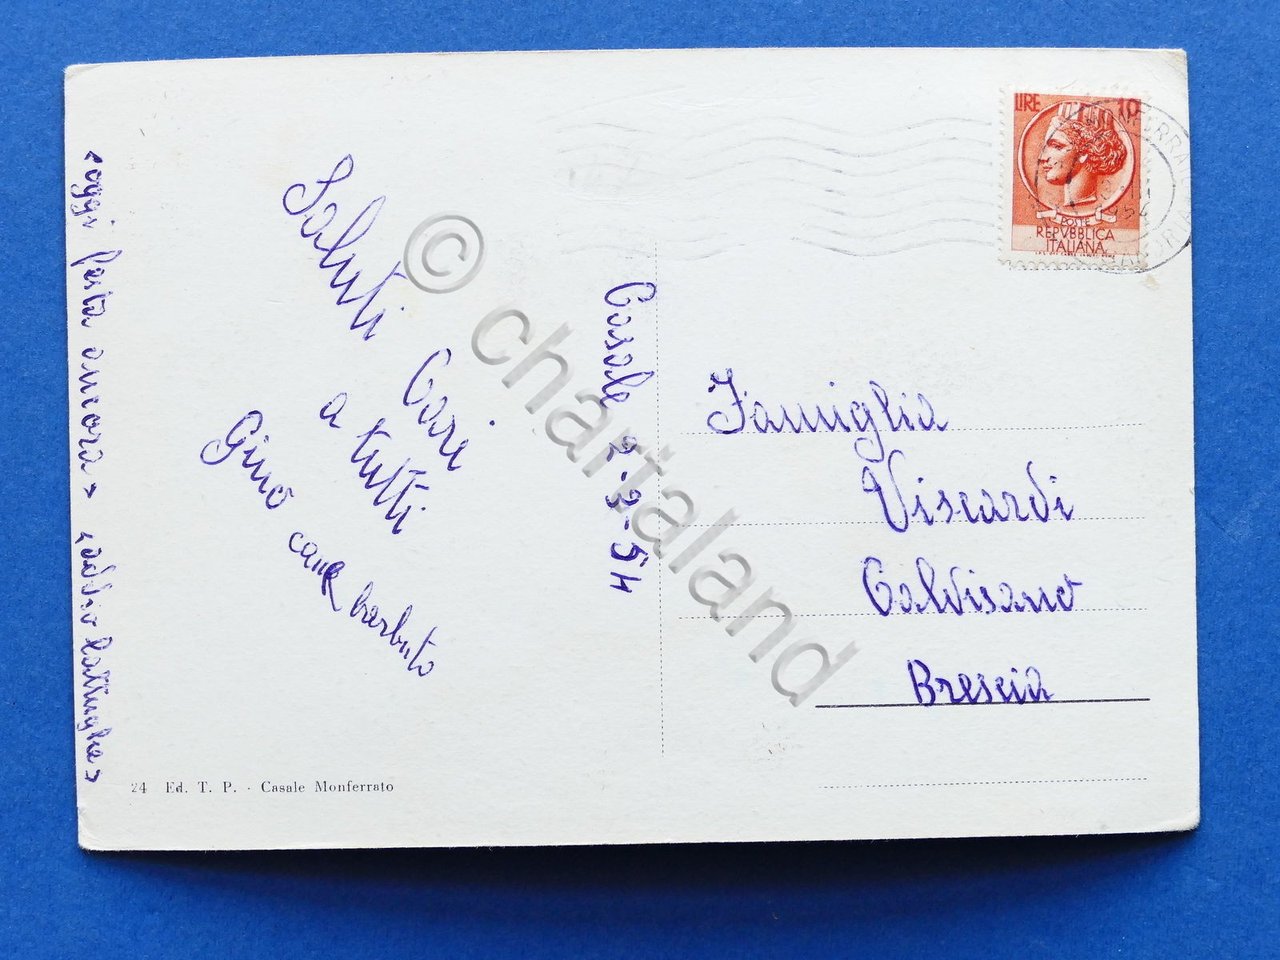 «oggi pasta ancora» «addio lattughe»
Saluti
Cari
a tutti
Gino cane barbuto
Casale 2-2-54
LIRE 10
POSTE
REPVBBLICA
ITALIANA
1954
Famiglia
Viscardi
Calvisano
Brescia
24 Ed. T. P. - Casale Monferrato
© chartaland